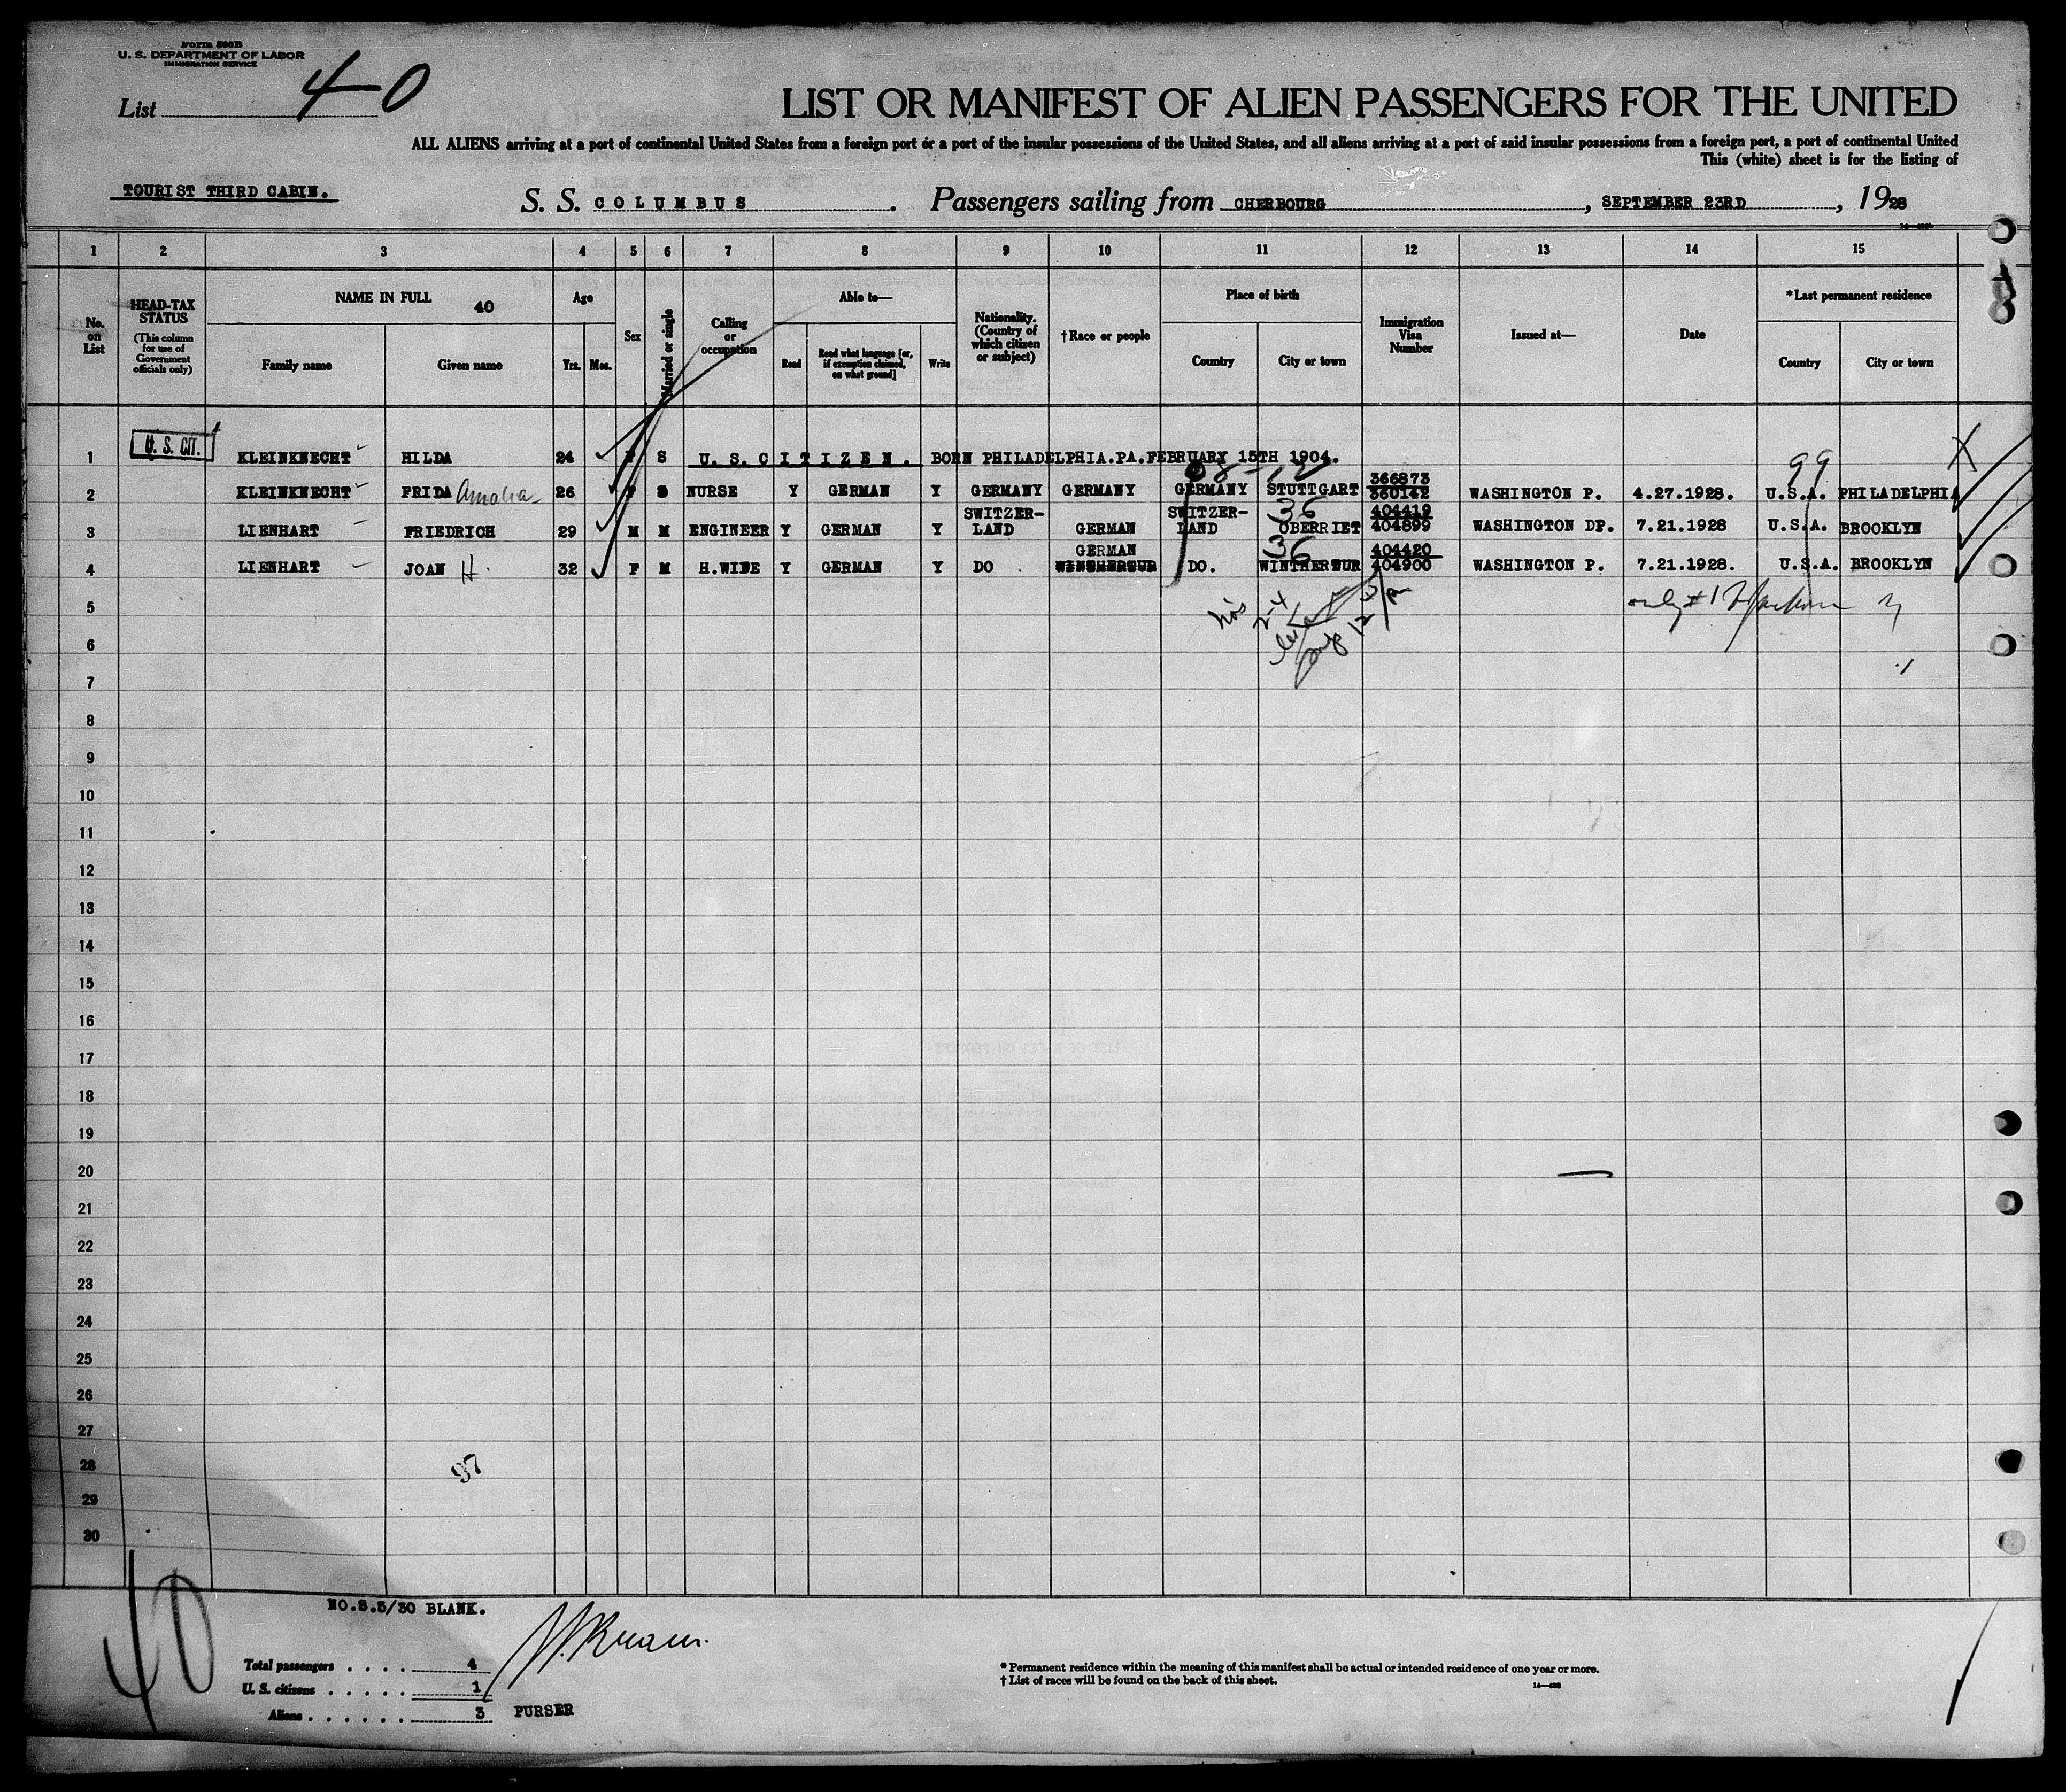 Form 500B
U. S. DEPARTMENT OF LABOR
IMMIGRATION SERVICE
List 40
LIST OR MANIFEST OF ALIEN PASSENGERS FOR THE UNITED
ALL ALIENS arriving at a port of continental United States from a foreign port or a port of the insular possessions of the United States, and all aliens arriving at a port of said insular possessions from a foreign port, a port of continental United
This (white) sheet is for the listing of
TOURIST THIRD CABIN.
S. S. COLUMBUS. Passengers sailing from CHERBOURG, SEPTEMBER 23RD, 1928
1 2 3 4 5 6 7 8 9 10 11 12 13 14 15
No. on List
HEAD-TAX STATUS
(This column for use of Government officials only)
NAME IN FULL 40
Family name Given name
Age
Yrs. Mos.
Sex
Married or single
Calling or occupation
Able to—
Read Read what language [or, if exemption claimed, on what ground] Write
Nationality. (Country of which citizen or subject)
†Race or people
Place of birth
Country City or town
Immigration Visa Number
Issued at—
Date
*Last permanent residence
Country City or town
1 U. S. CIT. KLEINKNECHT HILDA 24 S U.S.CITIZEN. BORN PHILADELPHIA.PA.FEBRUARY 15TH 1904.
99 X
366873
2 KLEINKNECHT FRIDA Amalia 26 S NURSE Y GERMAN Y GERMANY GERMANY GERMANY STUTTGART 360142 WASHINGTON P. 4.27.1928. U.S.A. PHILADELPHIA
SWITZER- SWITZER- 36 404419
3 LIENHART FRIEDRICH 29 M M ENGINEER Y GERMAN Y LAND GERMAN LAND OBERRIET 404899 WASHINGTON DP. 7.21.1928 U.S.A. BROOKLYN
GERMAN 36 404420
4 LIENHART JOAN H. 32 F M H.WIFE Y GERMAN Y DO WINTHERTUR DO. WINTHERTUR 404900 WASHINGTON P. 7.21.1928. U.S.A. BROOKLYN
5 only #1
2-4
6
7
8
9
10
11
12
13
14
15
16
17
18
19
20
21
22
23
24
25
26
27
28 97
29
30
40
NO.S.5/30 BLANK.
Total passengers . . . . 4
U. S. citizens . . . . . 1
Aliens . . . . . . 3
PURSER
* Permanent residence within the meaning of this manifest shall be actual or intended residence of one year or more.
† List of races will be found on the back of this sheet.